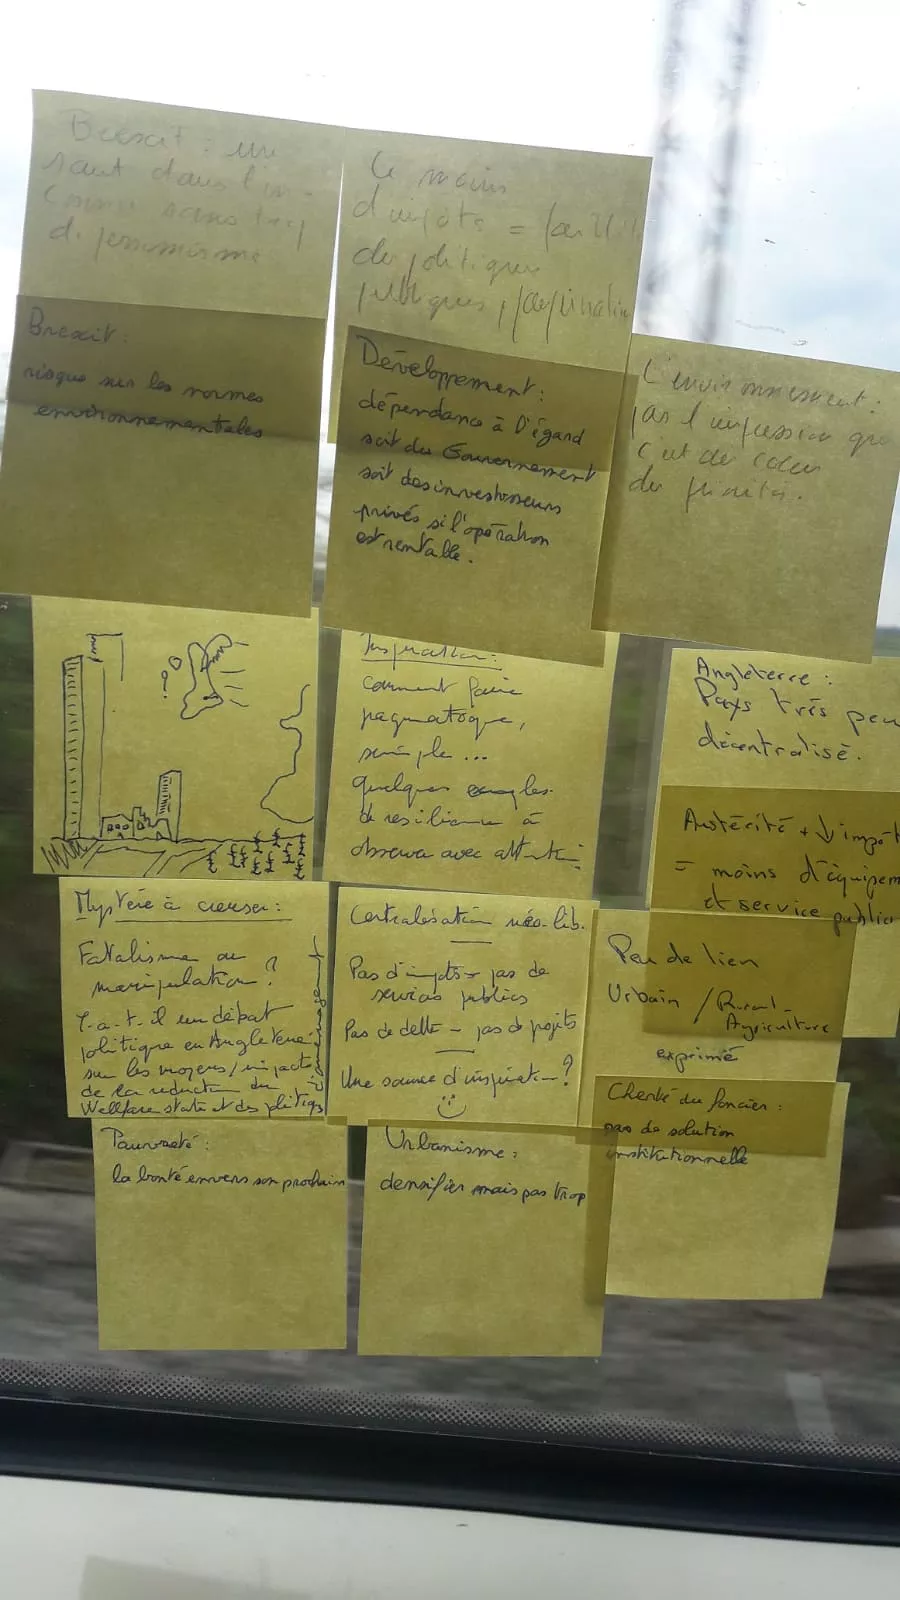 Brexit : un
saut dans l'in-
connu sans trop
de pessimisme
Le moins
d'impôts =
de politiques
publiques,
Brexit :
risque sur les normes
environnementales
Développement :
dépendance à l'égard
soit du Gouvernement
soit des investisseurs
privés si l'opération
est rentable.
L'environnement :
pas l'impression que
c'est au coeur
des priorités.
?
£ £ £ £ £
Inspiration :
comment faire
pragmatique,
simple ...
Quelques
de résilience à
observer avec
Angleterre :
Pays très peu
décentralisé.
Austérité + ↓ impôt
= moins d'équipem
et service public
Mystère à creuser :
Fatalisme ou
manipulation ?
Y-a-t-il un débat
politique en Angleterre
sur les moyens/impacts
de la réduction du
Wellfare state et des
d'aménagement
Centralisation néo-lib.
Pas d'impôts = pas de
services publics
Pas de dette = pas de projets
Une source d'inspiration ?
Peu de lien
Urbain / Rural-
Agriculture
exprimé
Cherté du foncier :
pas de solution
institutionnelle
Pauvreté :
la bonté envers son prochain
Urbanisme :
densifier mais pas trop